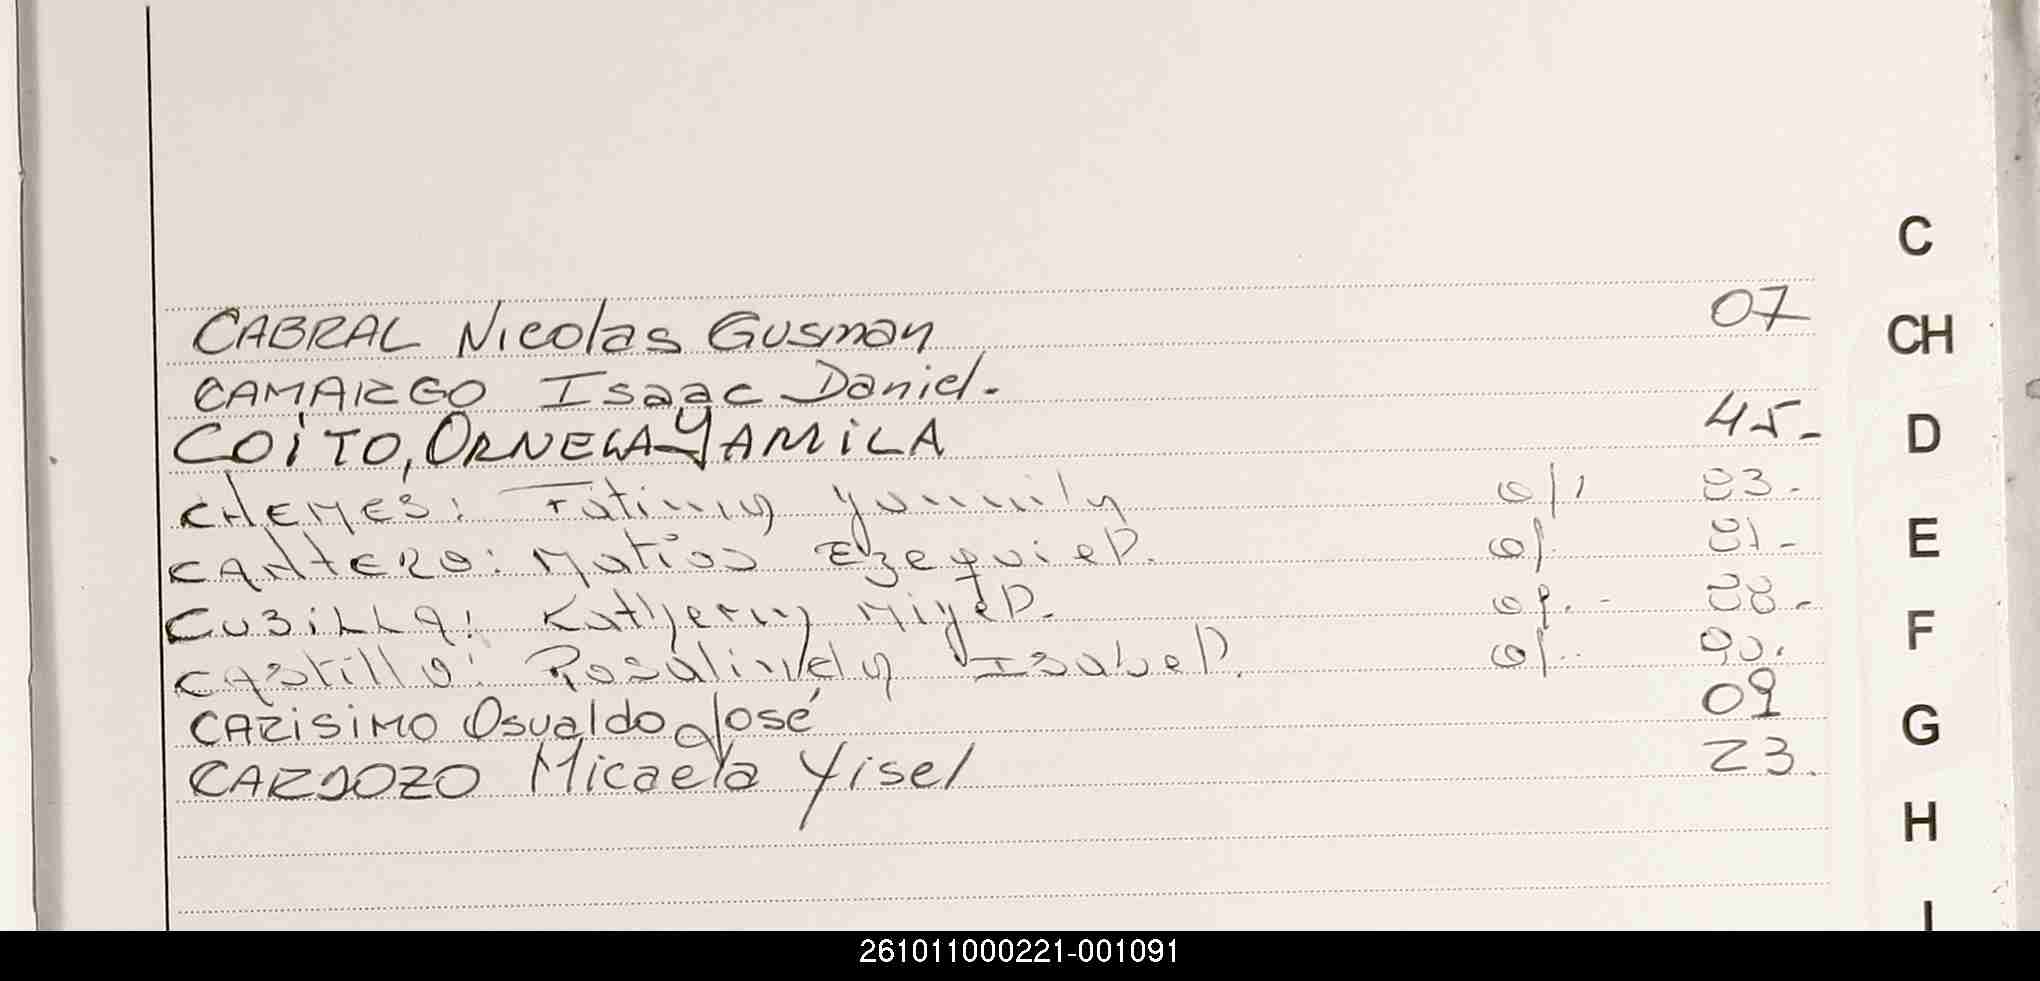 C
CABRAL Nicolas Gusman 07
CH
CAMARGO Isaac Daniel.
COiTO, ORNELA YAMiLA 45-
D
CHEMES: Fátima Yamily 83-
CANTERO: Matias Ezequiel. 81-
E
CUBILLA: Katherin 88-
F
CASTillo: Rosalinda Isabel. 90.
CARISIMO Osvaldo José 09
G
CARDOZO Micaela Yisel 23.
H
I
261011000221-001091